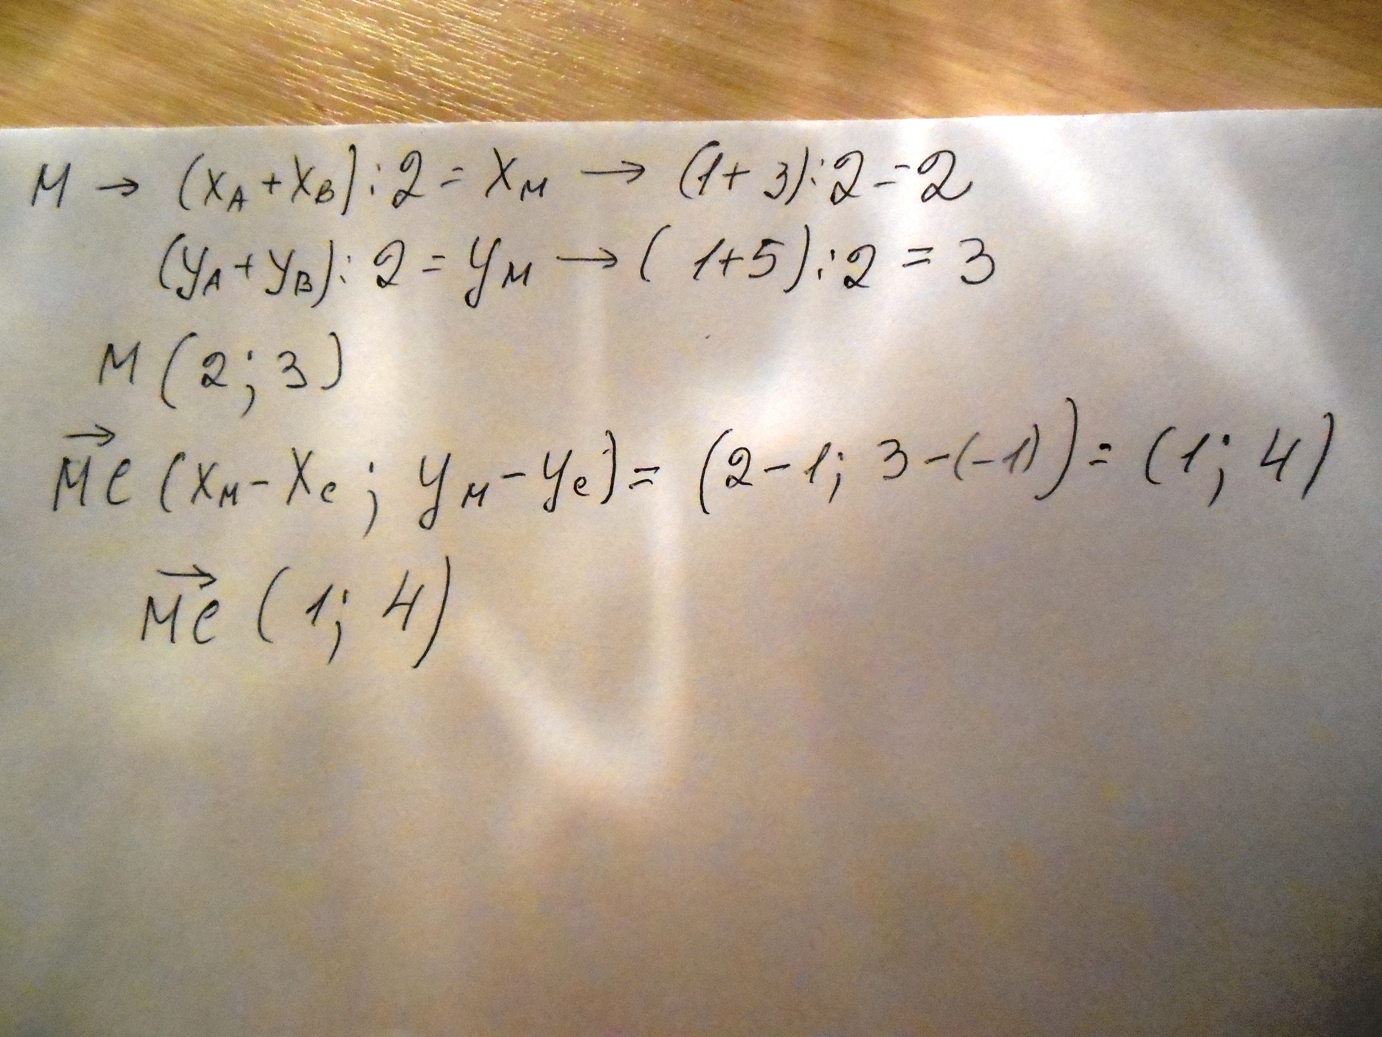 M → (xA + xB) : 2 = xM → (1 + 3) : 2 = 2
(yA + yB) : 2 = yM → (1+5) : 2 = 3
M (2; 3)
→MC (xM - xC ; yM - yC) = (2 - 1; 3 - (-1)) = (1; 4)
→MC (1; 4)